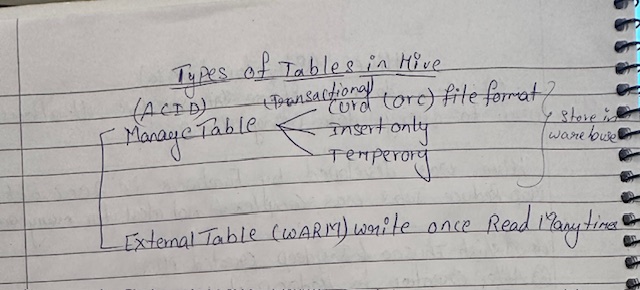 Types of Tables in Hive
(ACID) (Transactional)
Manage Table
Curd (orc) file format
Insert only
Temperory
Store in
warehouse
External Table (WARM) write once Read Many times